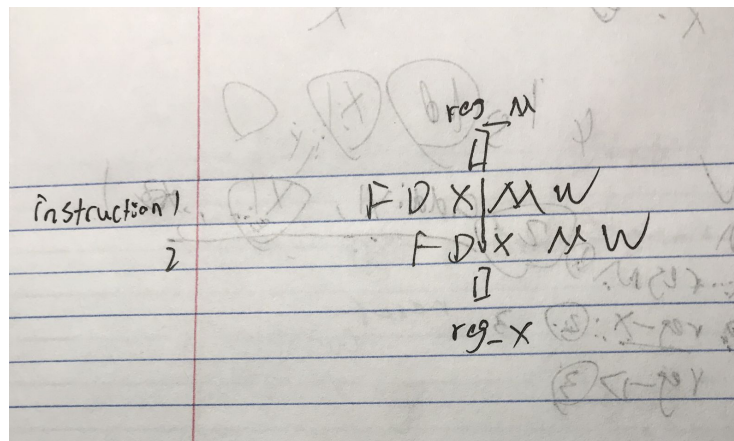 reg_M
instruction 1 F D X M W
2 F D X M W
reg_X